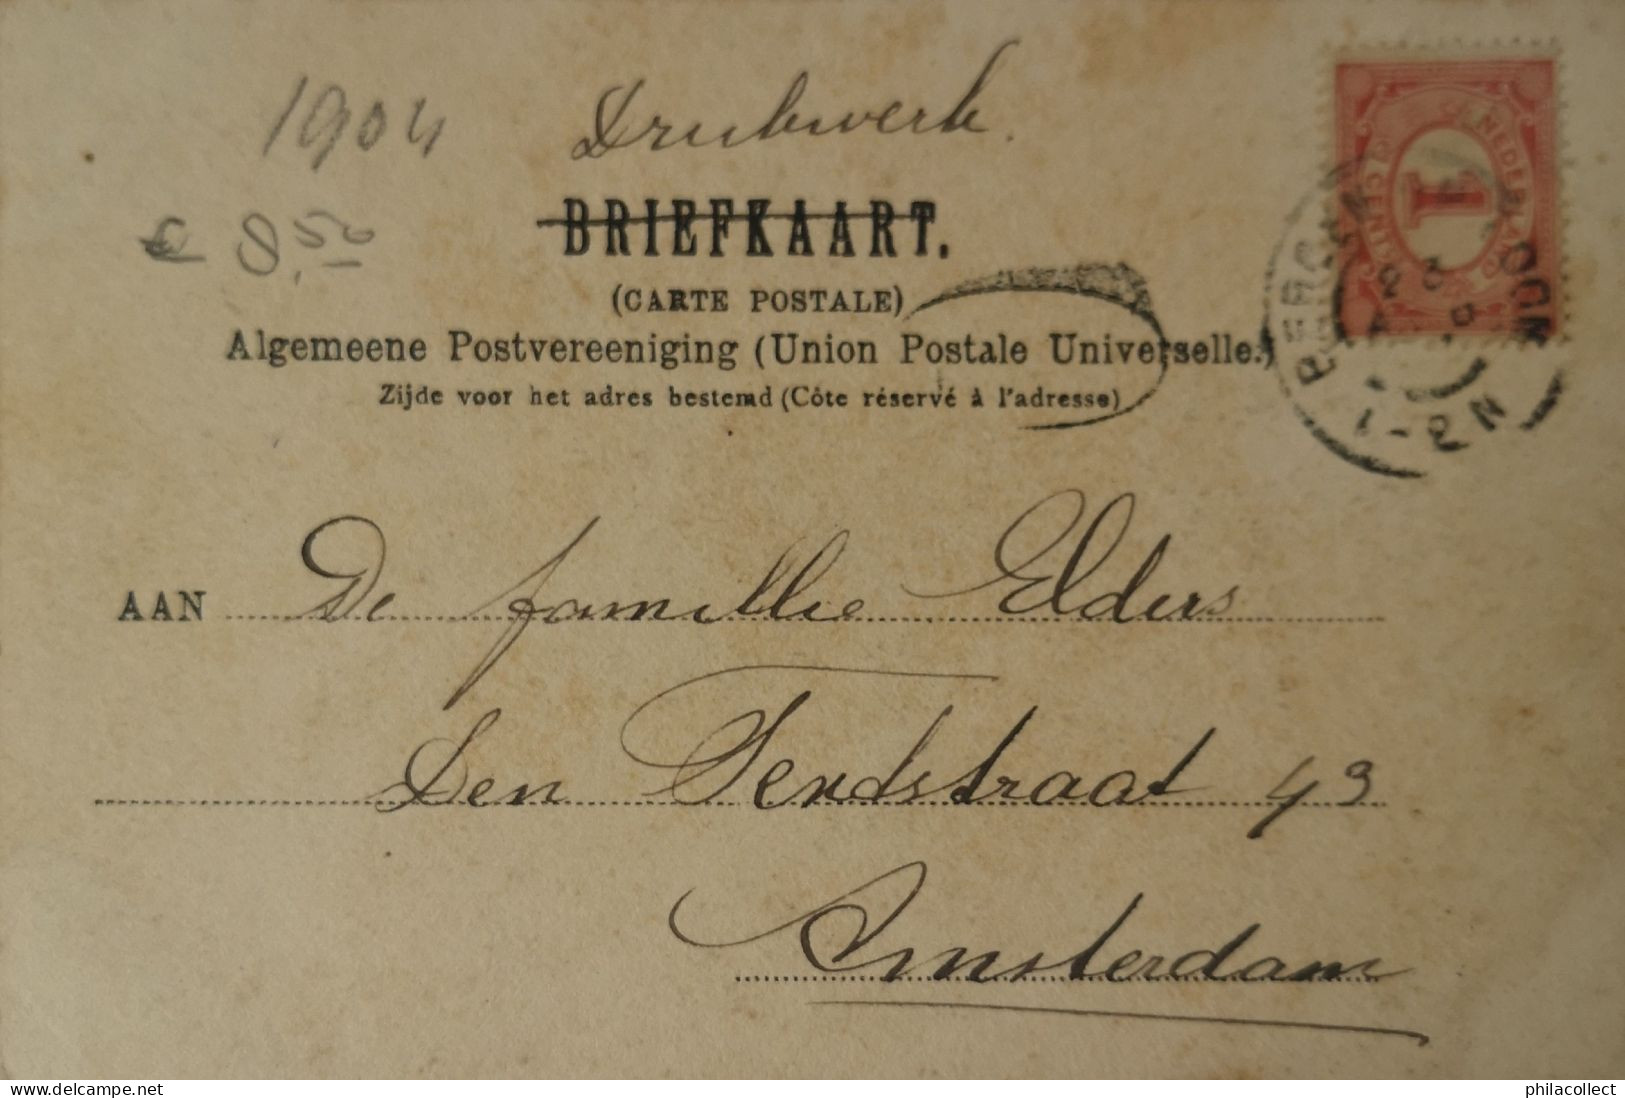 1904 Drukwerk.
€ 8,50
BRIEFKAART.
(CARTE POSTALE)
Algemeene Postvereeniging (Union Postale Universelle.)
Zijde voor het adres bestemd (Côte réservé à l'adresse)
NEDERLAND
1
CENT
BERGEN OOM
1-2N
AAN De famillie Elders
Den Textstraat 43
Amsterdam
www.delcampe.net
philacollect